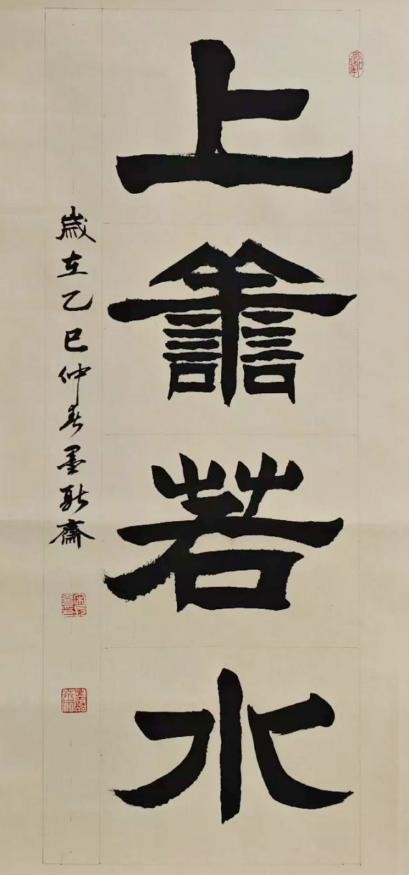 上譱若水
歲在乙巳仲春墨齋